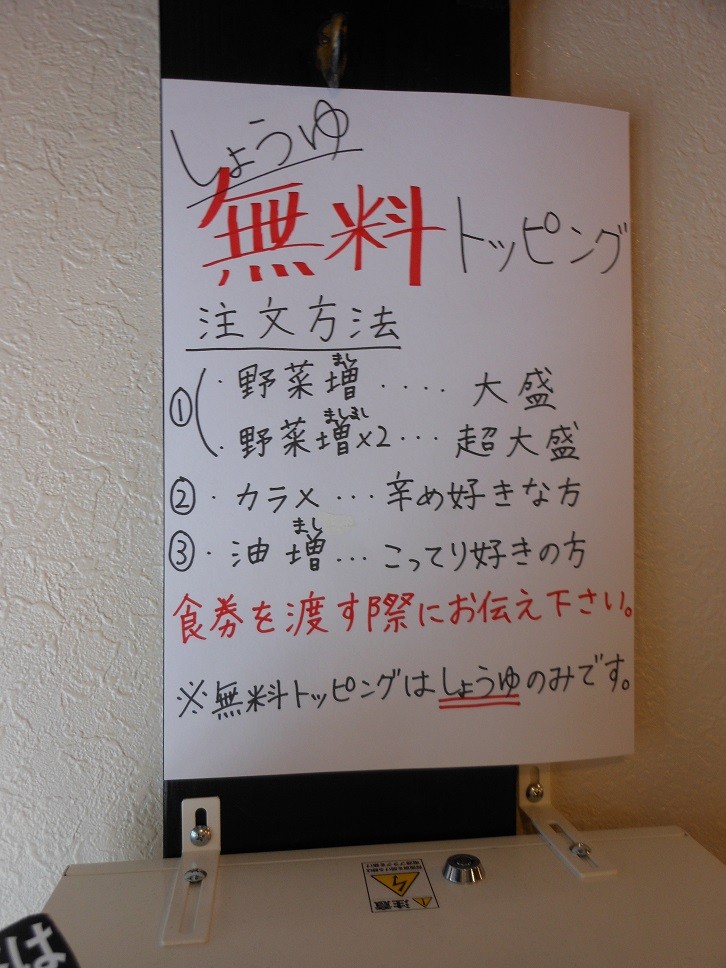 しょうゆ
無料トッピング
注文方法
① ・野菜増(まし)・・・・大盛
・野菜増(ましまし)×2・・・超大盛
②・カラメ・・・辛め好きな方
③・油増(まし)・・・こってり好きの方
食券を渡す際にお伝え下さい。
※無料トッピングはしょうゆのみです。
注意
は